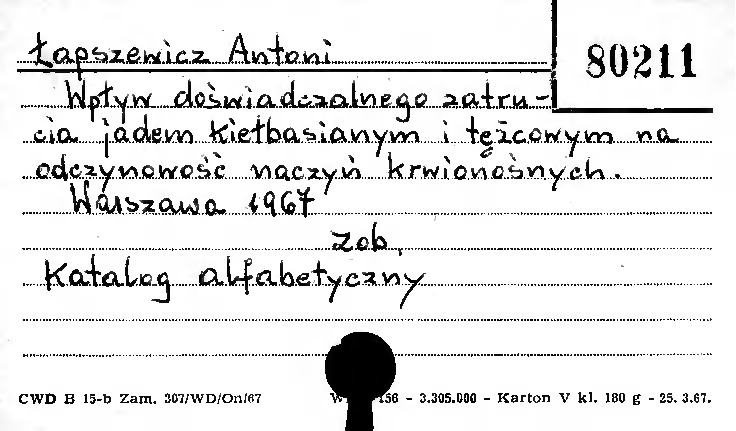 Łapszewicz Antoni
80211
Wpływ doświadczalnego zatru-
cia jadem kiełbasianym i tężcowym na
odczynowość naczyń krwionośnych.
Warszawa 1967
zob.
Katalog alfabetyczny
CWD B 15-b Zam. 307/WD/On/67 156 - 3.305.000 - Karton V kl. 180 g - 25. 3.67.